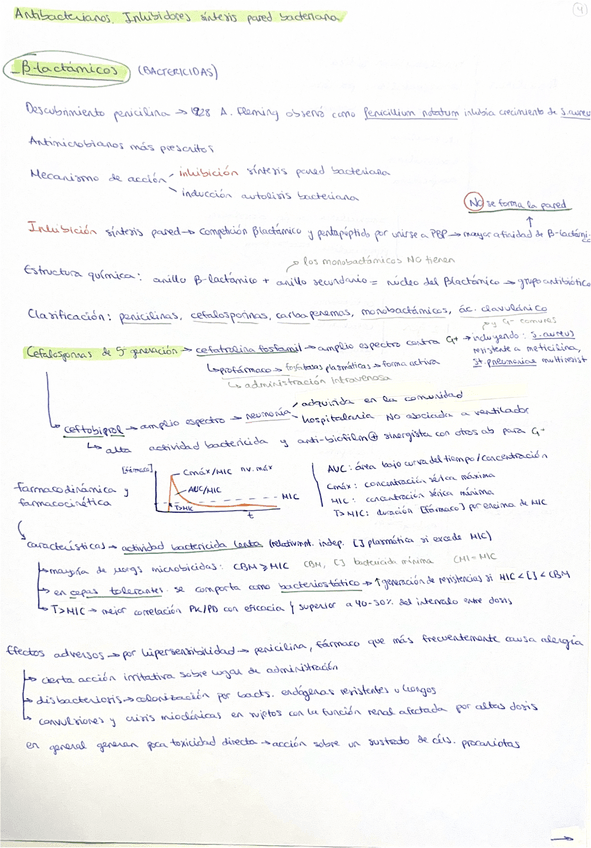 4
Antibacterianos. Inhibidores síntesis pared bacteriana
β-lactámicos (BACTERICIDAS)
Descubrimiento penicilina → 1928 A. Fleming observó como Penicillium notatum inhibía crecimiento de S. aureus
Antimicrobianos más prescritos
Mecanismo de acción inhibición síntesis pared bacteriana
inducción autolisis bacteriana
No se forma la pared
Inhibición síntesis pared → competición βlactámico y pentapéptido por unirse a PBP → mayor afinidad de β-lactámi
→ los monobactámicos NO tienen
Estructura química: anillo β-lactámico + anillo secundario = núcleo del βlactámico → grupo antibiótico
Clasificación: penicilinas, cefalosporinas, carbapenemas, monobactámicos, ác. clavulánico
→ y G- comunes
Cefalosporinas de 5ª generación → ceftarolina fosfamil → amplio espectro contra G+ → incluyendo: S. aureus
resistente a meticilina,
St. pneumoniae multirresist
↳ profármaco → fosfatasas plasmáticas → forma activa
↳ administración intravenosa
ceftobiprol → amplio espectro → neumonía adquirida en la comunidad
hospitalaria NO asociada a ventilador
↳ alta actividad bactericida y anti-biofilm ⊕ sinergista con otros ab para G-
farmacodinámica y
farmacocinética
[fármaco]
Cmáx/MIC nv. máx
AUC/MIC
MIC
T>MIC
t
AUC: área bajo curva del tiempo/concentración
Cmáx: concentración sérica máxima
MIC: concentración sérica mínima
T>MIC: duración [fármaco] por encima de MIC
características → actividad bactericida lenta (relativmnt. indep. [] plasmática si excede MIC)
→ mayoría de microgs microbicidas: CBM ⩾ MIC CBM, [] bactericida mínima CMI = MIC
→ en cepas tolerantes: se comporta como bacteriostático → ↑ generación de resistencias si MIC < [] < CBM
→ T>MIC → mejor correlación PK/PD con eficacia y superior a 40-50% del intervalo entre dosis
Efectos adversos → por hipersensibilidad → penicilina, fármaco que más frecuentemente causa alergia
→ cierta acción irritativa sobre lugar de administración
→ disbacteriosis → colonización por bacts. endógenas resistentes u hongos
→ convulsiones y crisis mioclónicas en sujetos con la función renal afectada por altas dosis
en general generan poca toxicidad directa → acción sobre un sustrato de céls. procariotas
→